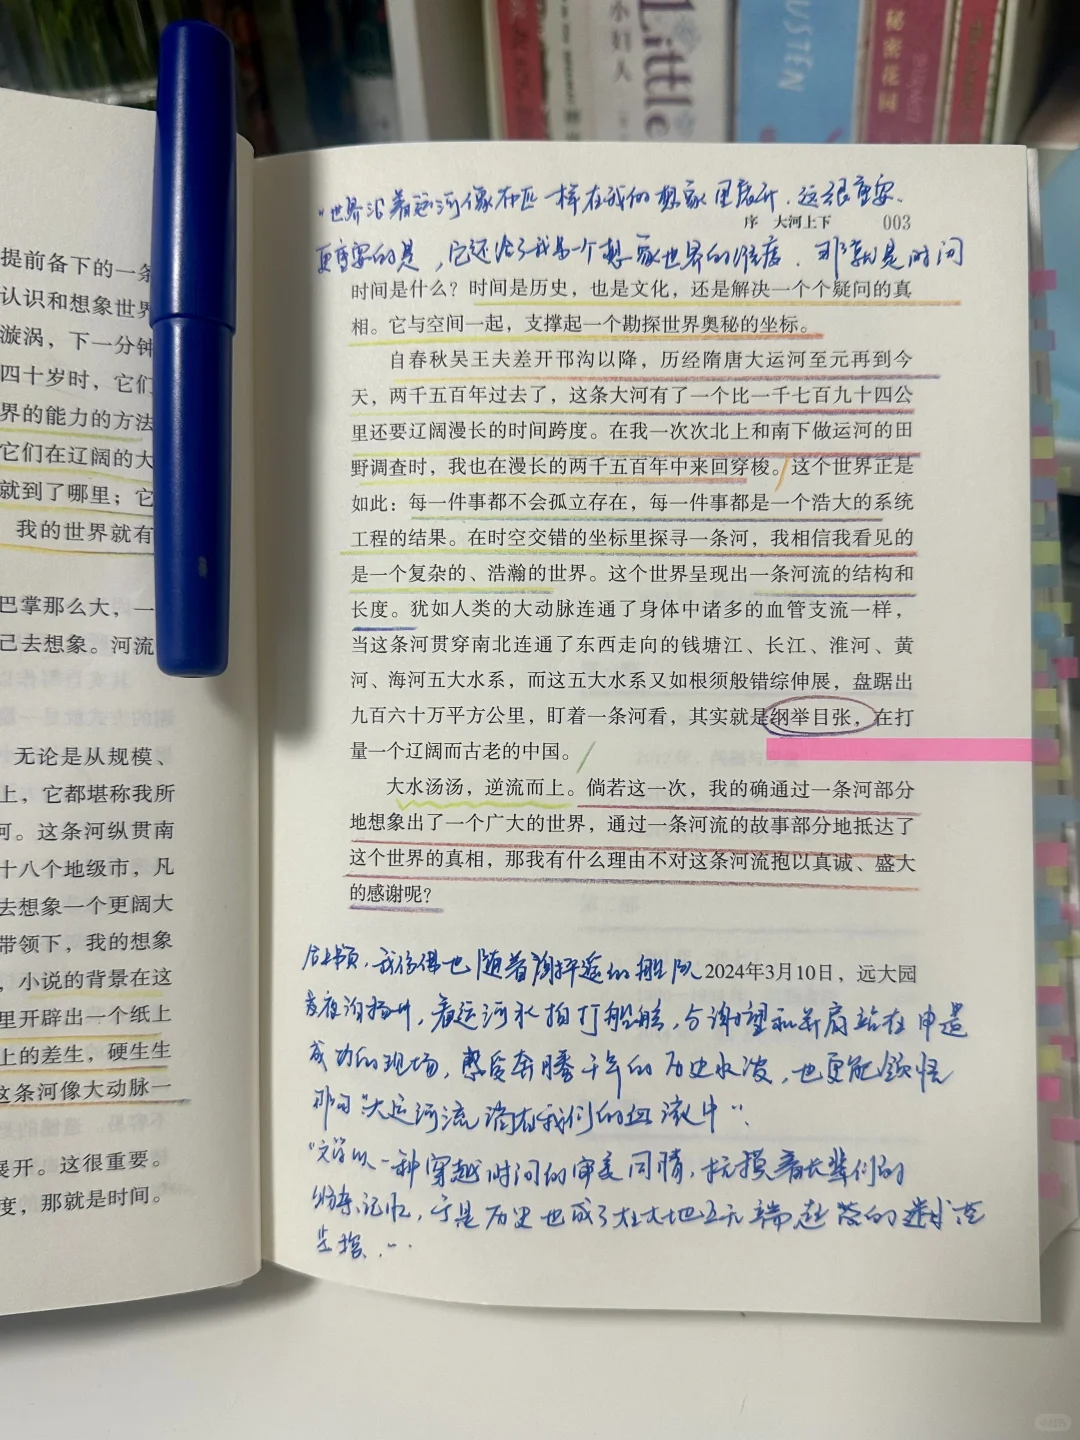 小妇人
Little
USTEN
秘密花园
提前备下的一条
认识和想象世界
漩涡，下一分钟
四十岁时，它们
界的能力的方法
它们在辽阔的大
就到了哪里；它
我的世界就有
巴掌那么大，一
己去想象。河流
无论是从规模、
上，它都堪称我所
河。这条河纵贯南
十八个地级市，凡
去想象一个更阔大
带领下，我的想象
，小说的背景在这
里开辟出一个纸上
上的差生，硬生生
这条河像大动脉一
展开。这很重要。
度，那就是时间。
“世界沿着运河像布匹一样在我的想象里展开，这很重要。
序 大河上下 003
更重要的是，它还给了我另一个想象世界的维度，那就是时间
时间是什么？时间是历史，也是文化，还是解决一个个疑问的真
相。它与空间一起，支撑起一个勘探世界奥秘的坐标。
自春秋吴王夫差开邗沟以降，历经隋唐大运河至元再到今
天，两千五百年过去了，这条大河有了一个比一千七百九十四公
里还要辽阔漫长的时间跨度。在我一次次北上和南下做运河的田
野调查时，我也在漫长的两千五百年中来回穿梭。这个世界正是
如此：每一件事都不会孤立存在，每一件事都是一个浩大的系统
工程的结果。在时空交错的坐标里探寻一条河，我相信我看见的
是一个复杂的、浩瀚的世界。这个世界呈现出一条河流的结构和
长度。犹如人类的大动脉连通了身体中诸多的血管支流一样，
当这条河贯穿南北连通了东西走向的钱塘江、长江、淮河、黄
河、海河五大水系，而这五大水系又如根须般错综伸展，盘踞出
九百六十万平方公里，盯着一条河看，其实就是纲举目张，在打
量一个辽阔而古老的中国。
大水汤汤，逆流而上。倘若这一次，我的确通过一条河部分
地想象出了一个广大的世界，通过一条河流的故事部分地抵达了
这个世界的真相，那我有什么理由不对这条河流抱以真诚、盛大
的感谢呢？
合上书页，我仿佛也随着谢平遥的船队
2024年3月10日，远大园
夜泊扬州，看运河水拍打船舷，与谢望和并肩站在申遗
成功的现场，感受奔腾千年的历史水波，也更能领悟
那句“大运河流淌在我们的血液中”。
“文学以一种穿越时间的审美同情，抗损着长辈们的
记忆，于是历史也成了大地上无端